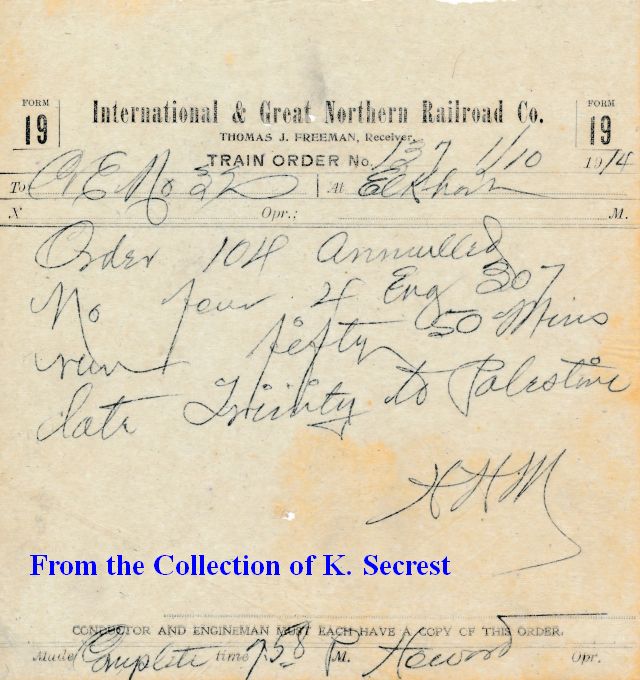 FORM 19 International & Great Northern Railroad Co. FORM 19
THOMAS J. FREEMAN, Receiver.
TRAIN ORDER No. 137 1/10 1914
To C&E No 32 At Elkhart
X Opr.: M.
Order 104 Annulled
No four 4 Eng 307
run fifty 50 Mins
late Trinity to Palestine
HHM
From the Collection of K. Secrest
CONDUCTOR AND ENGINEMAN MUST EACH HAVE A COPY OF THIS ORDER.
Made Complete time 758 P M. Howard Opr.